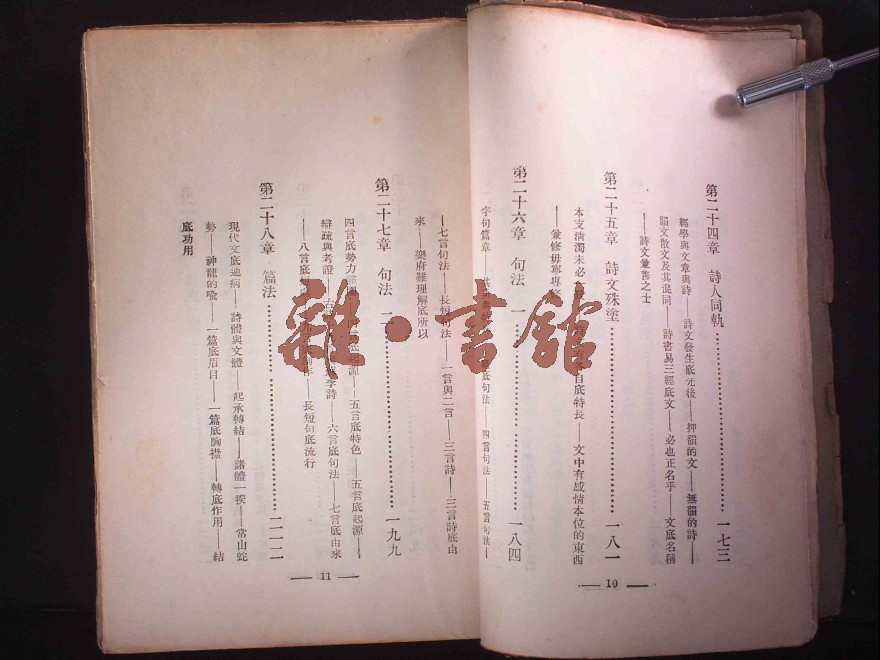 第二十四章 詩人同軌……一七三
經學與文章與詩——詩文發生底先後——押韻的文——無韻的詩——
韻文散文及其混同——詩書易三經底文——必也正名乎——文底名稱
——詩文兼善之士
第二十五章 詩文殊塗……一八一
本支清濁未必 自底特長——文中有感情本位的東西
——兼修毋寧專
第二十六章 句法 一……一八四
字句篇章—— 底句法——四言句法——五言句法——
—— 10 ——
——七言句法——長短句法——一言與二言——三言詩——三言詩底由
來——樂府難理解底所以
第二十七章 句法 二……一九九
四言底勢力 源——五言底特色——五言底起源——
辯疏與考證——古 李詩——六言底句法——七言底由來
——八言底 長短句底流行
第二十八章 篇法……二一二
現代文底通病——詩體與文體——起承轉結——諸體一揆——常山蛇
勢——神龍的喩——一篇底眉目——一篇底胸襟——轉底作用——結
底功用
—— 11 ——
雜·書館